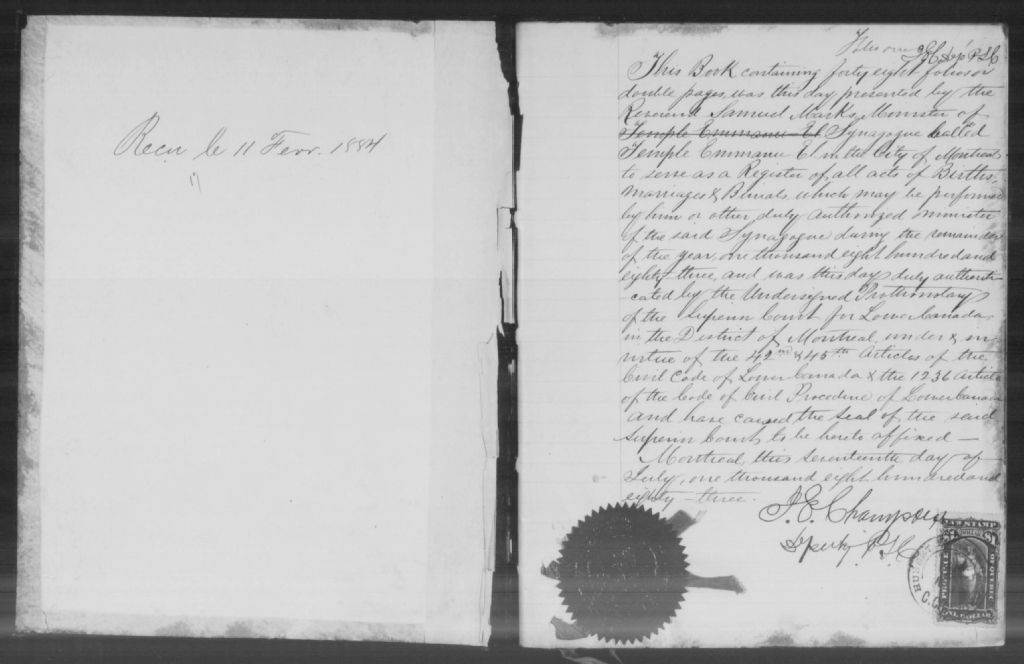 Recu le 11 Fevr. 1884
This Book containing forty eight folios or
double pages, was this day presented by the
Reverend Samuel Marks, Minister of
Temple Emmanu-El Synagogue called
Temple Emmanu El in the City of Montreal
to serve as a Register of all acts of Births,
Marriages & Burials, which may be performed
by him or other duly authorized minister
of the said Synagogue during the remainder
of the year, one thousand eight hundred and
eighty three, and was this day duly authenti
-cated by the Undersigned Prothonotary
of the Superior Court for Lower Canada,
in the District of Montreal, under & in
virtue of the 42nd & 45th Articles of the
Civil Code of Lower Canada & the 1236 Article
of the Code of Civil Procedure of Lower Canada
and have caused the Seal of the said
Superior Court, to be hereto affixed —
Montreal, this seventeenth day of
July, one thousand eight hundred and
eighty-three.
Depty P.S.C
LAW STAMP
$1
PROVINCE
OF QUEBEC